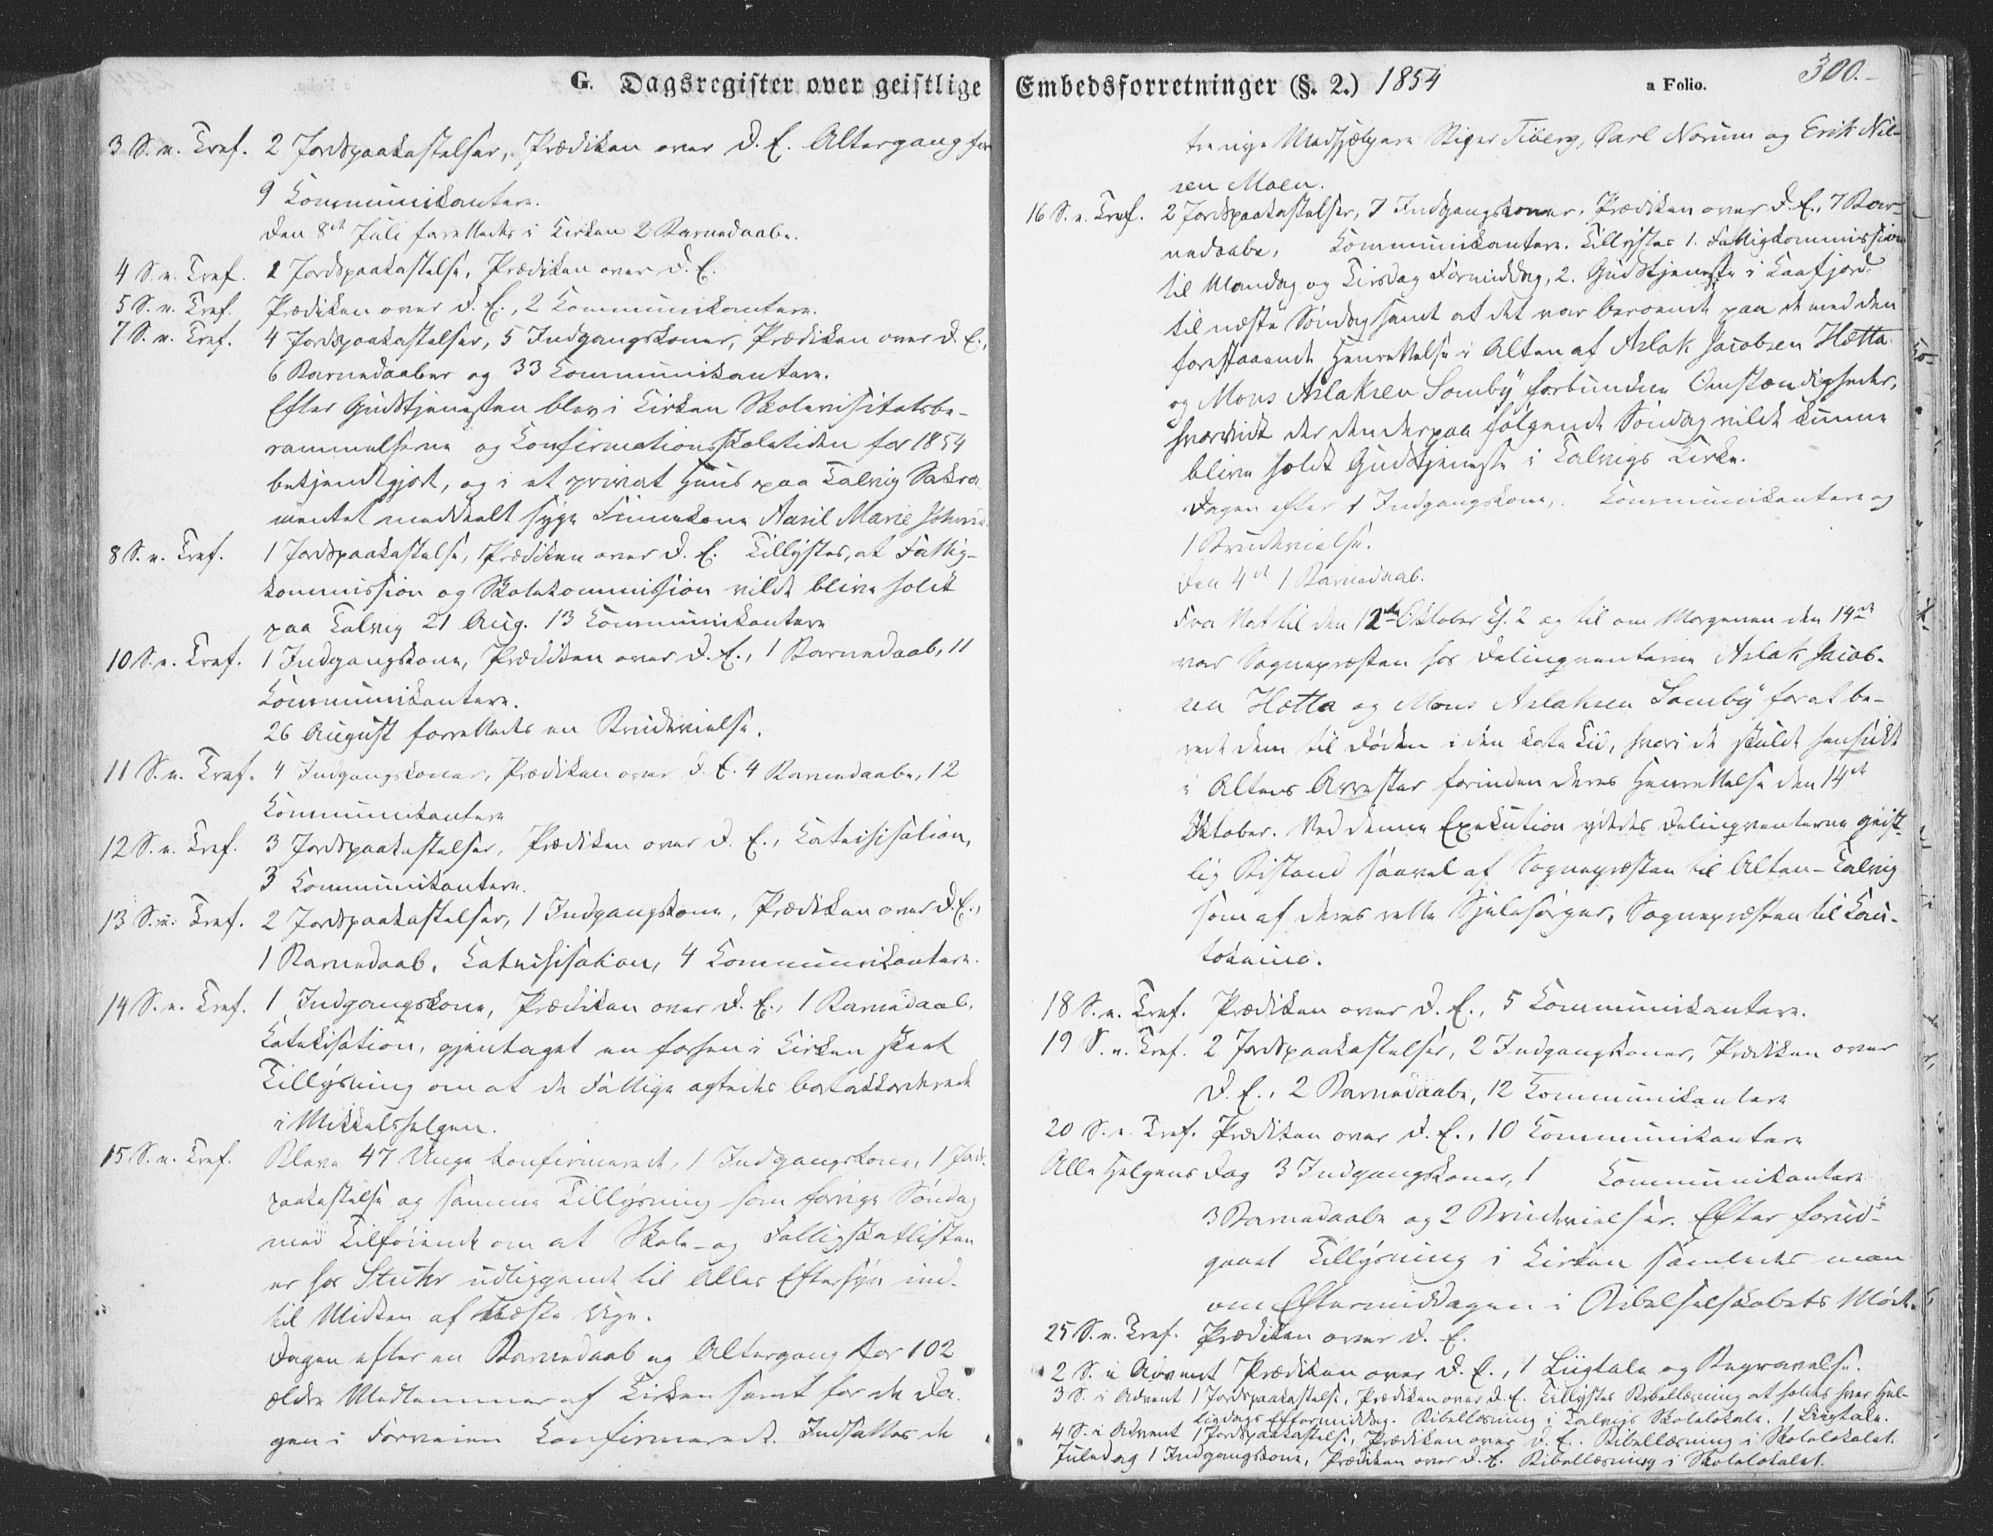 G. Dagsregister over geistlige
3 S. e. Tref. 2 Jordspaakastelser, Prædiken over D. E. Altergang for
9 Kommunikantere.
Den 8de Juli forrettedes i Kirken 2 Barnedaabe.
4 S. e. Tref. 2 Jordspaakastelse, Prædiken over D. E.
5 S. e. Tref. Prædiken over D. E., 2 Kommunikantere.
7 S. e. Tref. 4 Jordspaakastelser, 5 Indgangskoner, Prædiken over D. E.,
6 Barnedaaber og 33 Kommunikantere.
Efter Gudstjenesten blev i Kirken Skolevisitatsbe-
rammelserne og Konfirmationsskoletiden for 1854
bekjendtgjort, og i et privat Huus paa Talvig Sakra
mentet meddeelt syge Finnekone Marie
8 S. e. Tref. 1 Jordspaakastelse, Prædiken over D. E. Tillystes, at Fattig-
kommission og Skolekommission vilde blive holdt
paa Talvig 21 Aug. 13 Kommunikantere
10 S. e. Tref. 1 Indgangskone, Prædiken over D. E., 1 Barnedaab, 11
Kommunikantere.
26 August forrettedes en Brudevielse.
11 S. e. Tref. 4 Indgangskoner, Prædiken over D. E. 4 Barnedaabe, 12
Kommunikantere
12 S. e. Tref. 3 Jordspaakastelser, Prædiken over D. E., Katechisation,
3 Kommunikantere.
13 S. e. Tref. 2 Jordspaakastelser, 1 Indgangskone, Prædiken over D. E.,
1 Barnedaab, Katechisation, 4 Kommunikantere.
14 S. e. Tref. 1 Indgangskone, Prædiken over D. E., 1 Barnedaab,
Katekisation, gjentaget en forhen i Kirken skeet
Tillysning om at de Fattige agtedes bortakkorderede
i Mikkelshelgen.
15 S. e. Tref. Bleve 47 Unge konfirmerede, 1 Indgangskone, 1 Jords-
paakastelse og samme Tillysning som forrige Søndag
med Tilføiende om at Skole- og Fattigskatlisten
er hos Stuhr udliggende til Alles Eftersyn ind-
til Midten af næste Uge.
Dagen efter en Barnedaab og Altergang for 102
ældre Medlemmer af Kirken samt for de Da-
gen i Forveien Konfirmerede. Indsattes de
Embedsforretninger (§. 2.) 1854 a Folio. 300.-
tre nye Medhjælpere Tiberg, Carl Norum og Erik Nil-
sen Moen.
16 S. e. Tref. 2 Jordspaakastelser, 7 Indgangskoner, Prædiken over D. E., 7 Bar-
nedaabe, Kommunikantere. Tillystes 1. Fattigkommission
til Mandag og Tirsdag Formiddag, 2. Gudstjeneste i Kaafjord
til næste Søndag samt at det var beroende paa de med den
forestaaende Henrettelse i Alten af Aslak Jacobsen Hætta
og Mons Aslaksen Somby forbundne Omstændigheder,
hvorvidt der den derpaa følgende Søndag vilde kunne
blive holdt Gudstjeneste i Talvigs Kirke.
Dagen efter 1 Indgangskone, Kommunikantere og
1 Brudevielse.
Den 4de 1 Barnedaab.
Fra Nat til den 12te Oktober Kl. 2 og til om Morgenen den 14de
var Sognepræsten hos Delinqventerne Aslak Jacob-
sen Hætta og Mons Aslaksen Somby for at be-
rede dem til Døden i den korte Tid, hvori de skulde hensidde
i Altens Arrester forinden deres Henrettelse den 14de
Oktober. Ved denne Exekution ydedes Delinqventerne geist-
lig Bistand saavel af Sognepræsten til Alten-Talvig
som af deres rette Sjelesørger, Sognepræsten til Kau-
tokeino.
18 S. e. Tref. Prædiken over D. E., 5 Kommunikantere.
19 S. e. Tref. 2 Jordspaakastelser, 2 Indgangskoner, Prædiken over
D. E., 2 Barnedaabe, 12 Kommunikantere
20 S. e. Tref. Prædiken over D. E., 10 Kommunikantere
Alle Helgens Dag 3 Indgangskoner, 1 Kommunikantere
3 Barnedaabe og 2 Brudevielser. Efter forud-
gaaet Tillysning i Kirken samledes man
om Eftermiddagen i Bibelselskabets Møde.
25 S. e. Tref. Prædiken over D. E.
2 S. i Advent Prædiken over D. E., 1 Liigtale og Begravelse.
3 S. i Advent 1 Jordspaakastelse, Prædiken over D. E. Tillystes Bibellæsning at holdes hver Hel-
ligdags Eftermiddag. Bibellæsning i Talvigs Skolelokale. 1 Liigtale.
4 S. i Advent 1 Jordspaakastelse, Prædiken over D. E. Bibellæsning i Skolelokalet.
Juledag 1 Indgangskone, Prædiken over D. E. Bibellæsning i Skolelokalet.